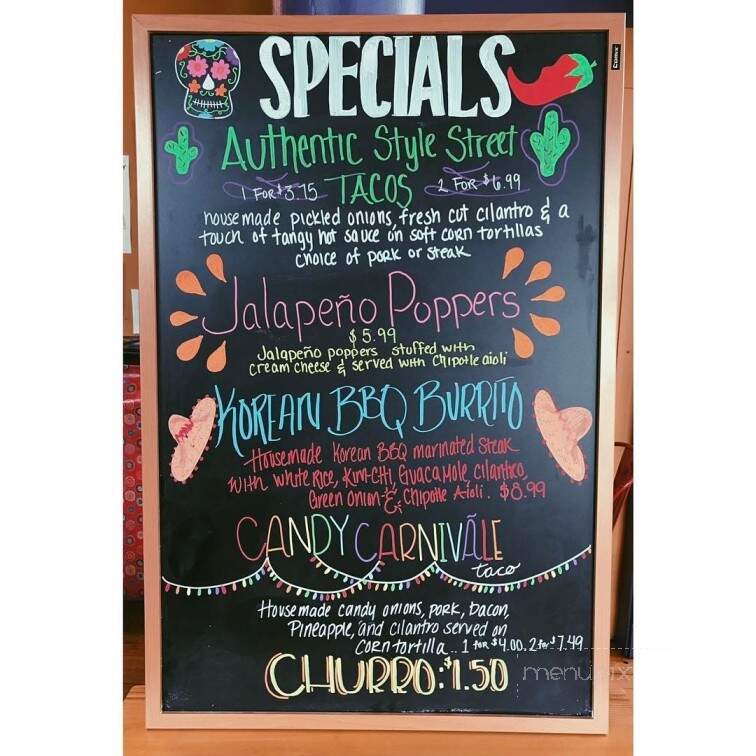 SPECIALS
Authentic Style Street
1 FOR $3.75 TACOS 2 FOR $6.99
housemade pickled onions, fresh cut cilantro & a
touch of tangy hot sauce on soft corn tortillas
choice of pork or steak
Jalapeño Poppers
$5.99
Jalapeño poppers stuffed with
cream cheese & served with Chipotle aioli
KOREAN BBQ BURRITO
Housemade Korean BBQ marinated steak
with white rice, Kim-CHi, Guacamole cilantro,
Green onion & Chipotle Aioli. $8.99
CANDY CARNIVÃLE
taco
Housemade candy onions, pork, bacon,
Pineapple, and cilantro served on
corn tortilla.. 1 for $4.00. 2 for $7.49
CHURRO: $1.50